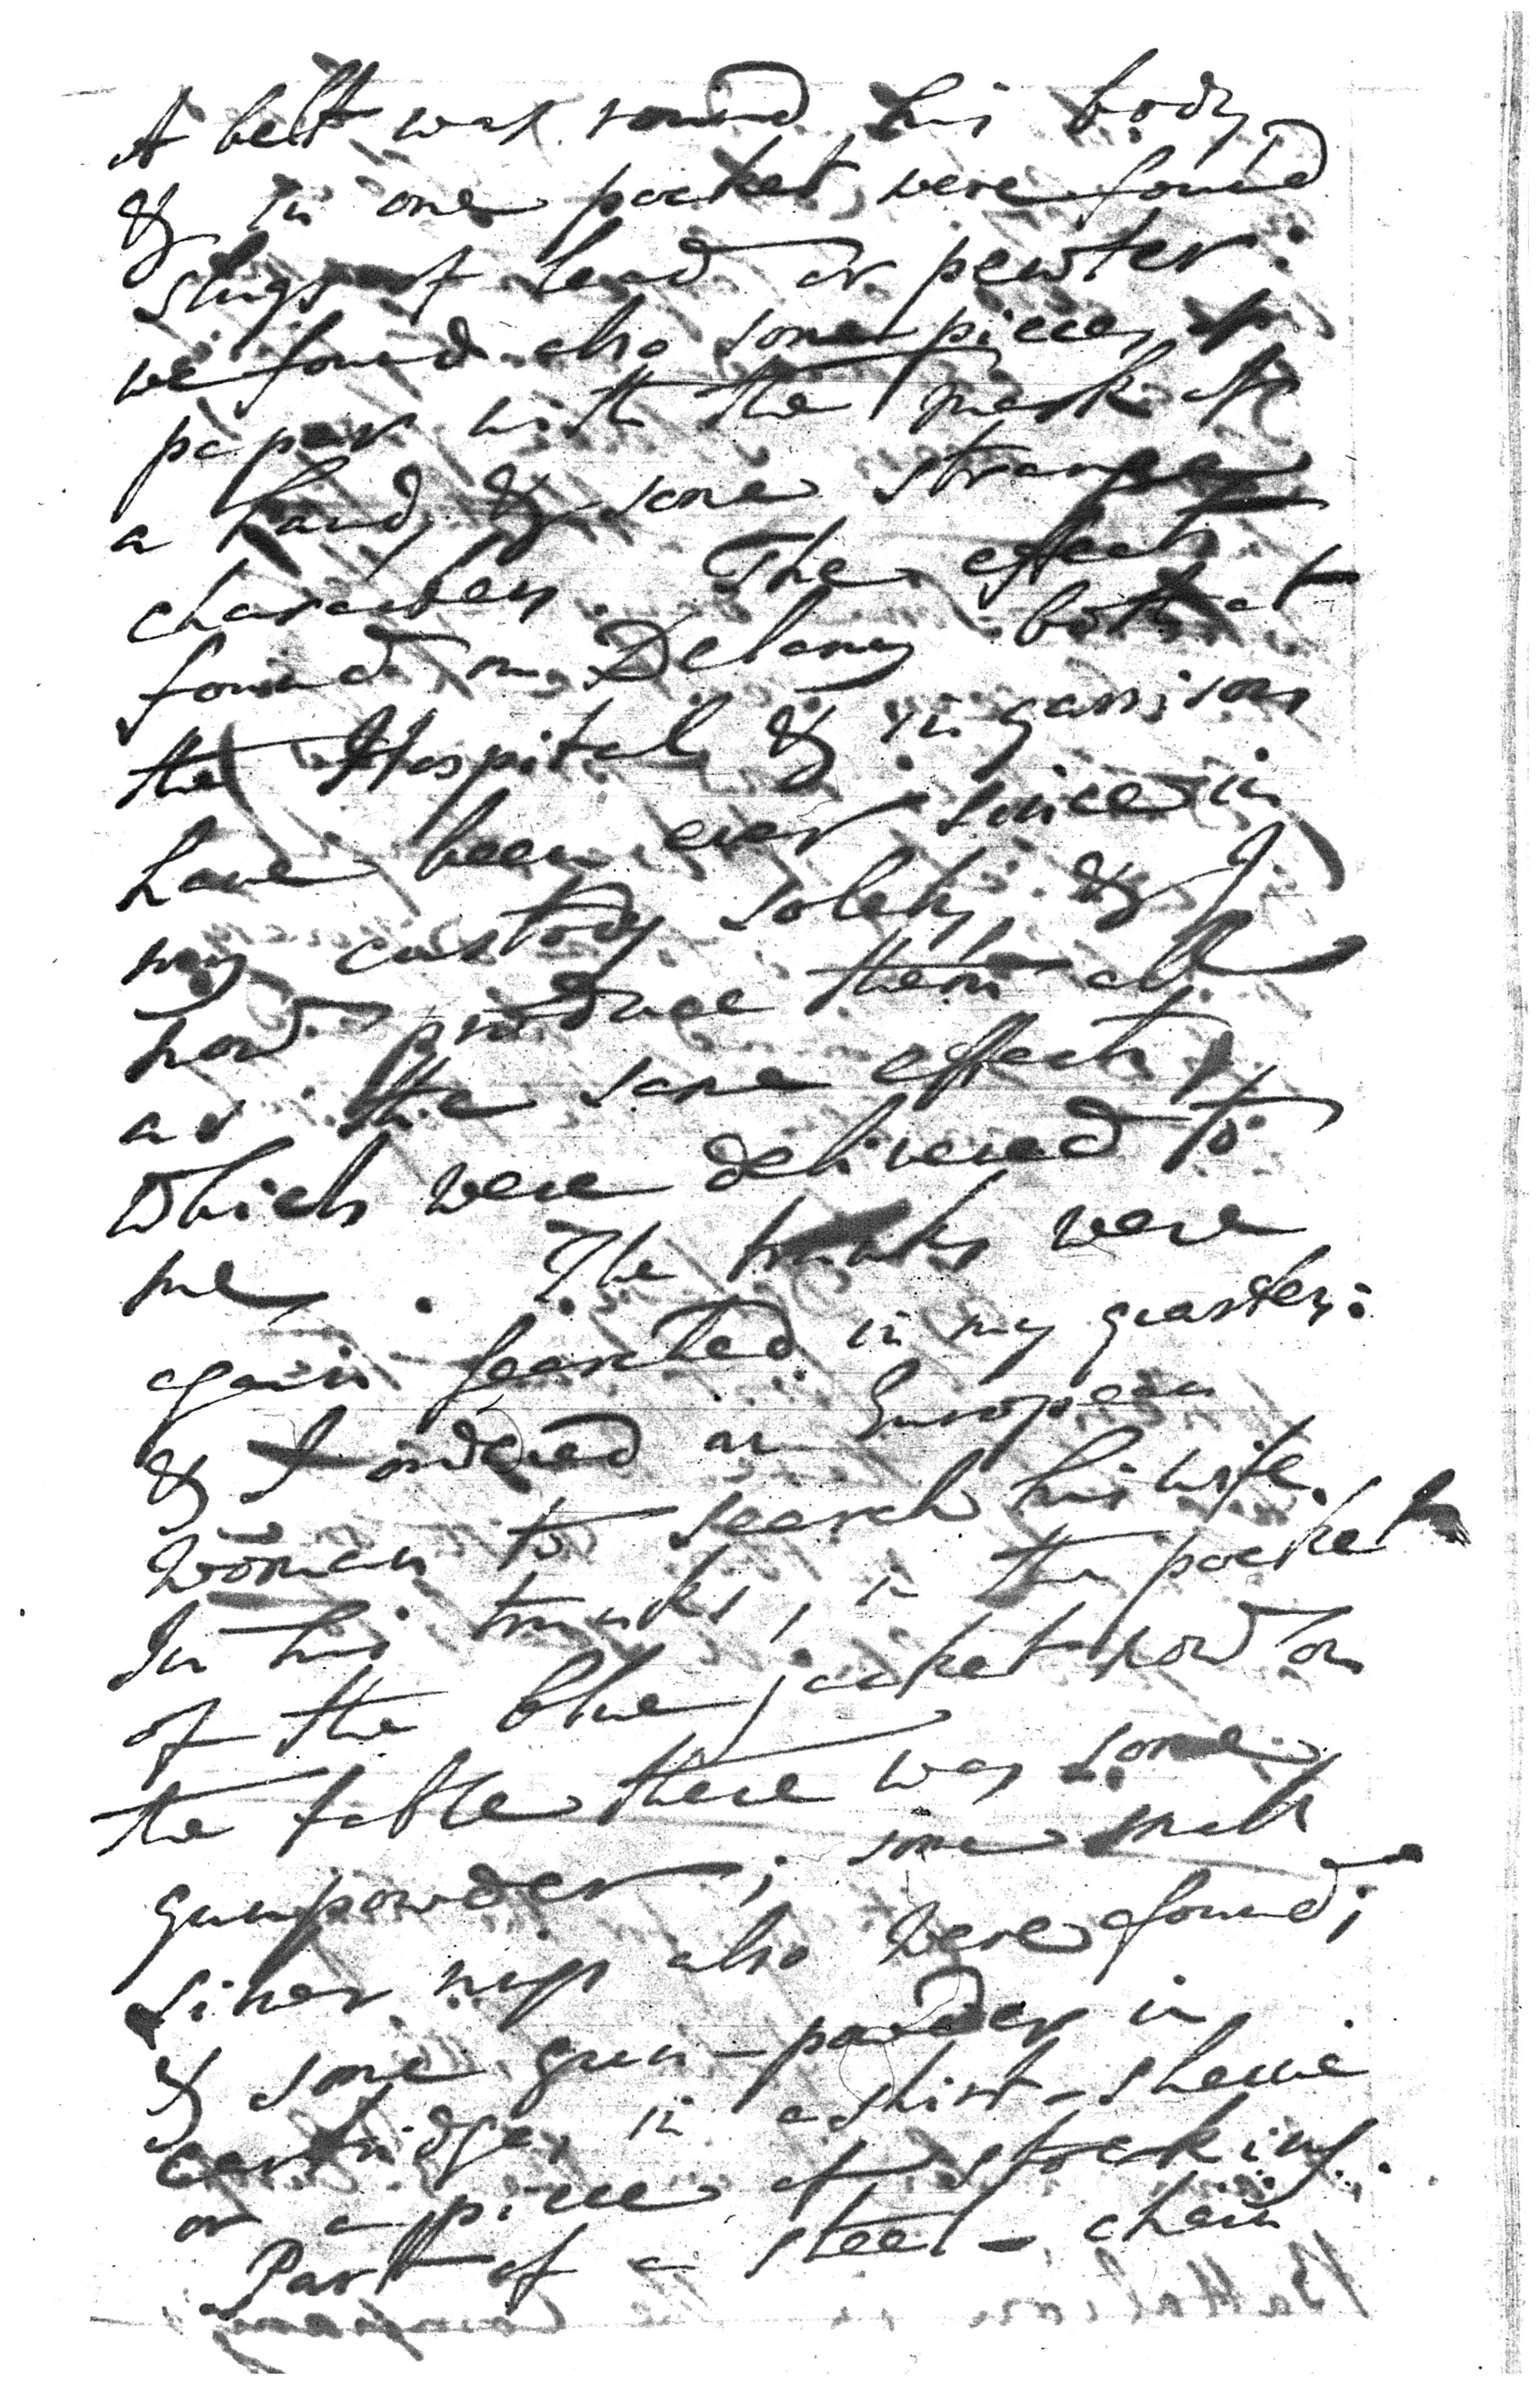 A belt was round his body
& in one pocket, were found
slugs of lead or pewter:
we found also some pieces of
paper with the mark of
a hand, & some strange
characters. The effects
found on Delaney both at
the Hospital, & in garrison
have been ever since in
my custody solely, & I
now produce them all
as the same effects
which were delivered to
me. The trunks were
again searched in my quarters:
& I ordered an European
woman to search his wife.
In his trunks, in the pocket
of the blue jacket now on
the table there was some
gunpowder; some small
silver also were found;
& some gun-powder in
cartridges in a shirt-sleeve
or a piece of stocking.
Part of a steel-chain